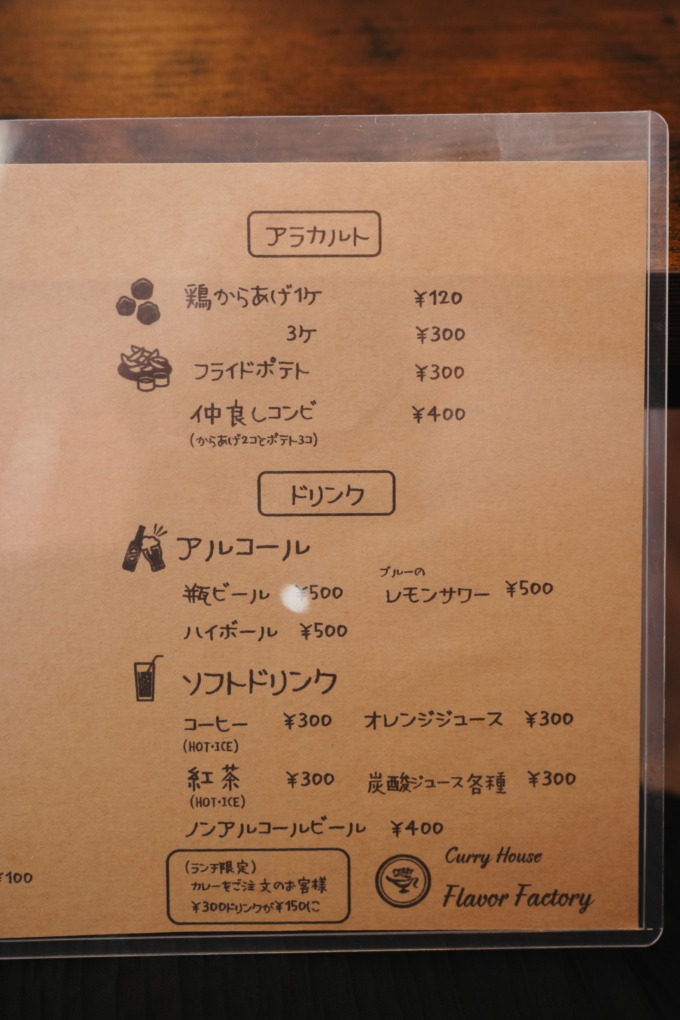 アラカルト
鶏からあげ1ケ ¥120
3ケ ¥300
フライドポテト ¥300
仲良しコンビ ¥400
(からあげ2コとポテト3コ)
ドリンク
アルコール
瓶ビール ¥500
ブルーの
レモンサワー ¥500
ハイボール ¥500
ソフトドリンク
コーヒー ¥300 オレンジジュース ¥300
(HOT・ICE)
紅茶 ¥300 炭酸ジュース各種 ¥300
(HOT・ICE)
ノンアルコールビール ¥400
(ランチ限定)
カレーをご注文のお客様
¥300ドリンクが¥150に
Curry House
Flavor Factory
¥100